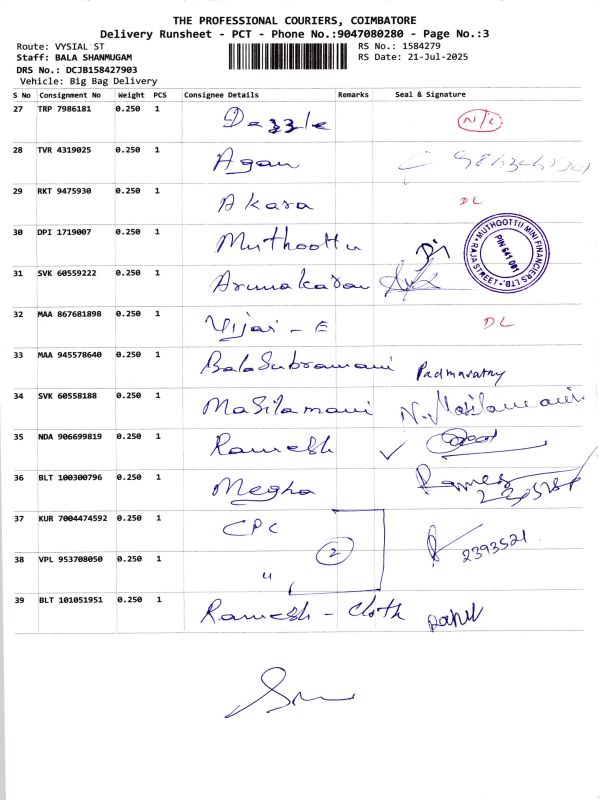 THE PROFESSIONAL COURIERS, COIMBATORE
Delivery Runsheet - PCT - Phone No.:9047080280 - Page No.:3
Route: VYSIAL ST
RS No.: 1584279
Staff: BALA SHANMUGAM
RS Date: 21-Jul-2025
DRS No.: DCJB158427903
Vehicle: Big Bag Delivery
S No Consignment No Weight PCS Consignee Details Remarks Seal & Signature
27 TRP 7986181 0.250 1 Dazzle N/C
28 TVR 4319025 0.250 1 Agan
29 RKT 9475930 0.250 1 Akara DL
30 DPI 1719007 0.250 1 Muthoottu
MUTHOOTTU MINI FINANCIERS LTD.
RAJA STREET
PIN 641 001
31 SVK 60559222 0.250 1 Arunakaran
32 MAA 867681898 0.250 1 Vijai - E DL
33 MAA 945578640 0.250 1 BalaSubramani Padmavathy
34 SVK 60558188 0.250 1 Masilamani N. Masilamani
35 NDA 906699819 0.250 1 Ramesh
36 BLT 100300796 0.250 1 Megha Rames
37 KUR 7004474592 0.250 1 CPC
2
2393521
38 VPL 953708050 0.250 1 "
39 BLT 101051951 0.250 1 Ramesh - Cloth